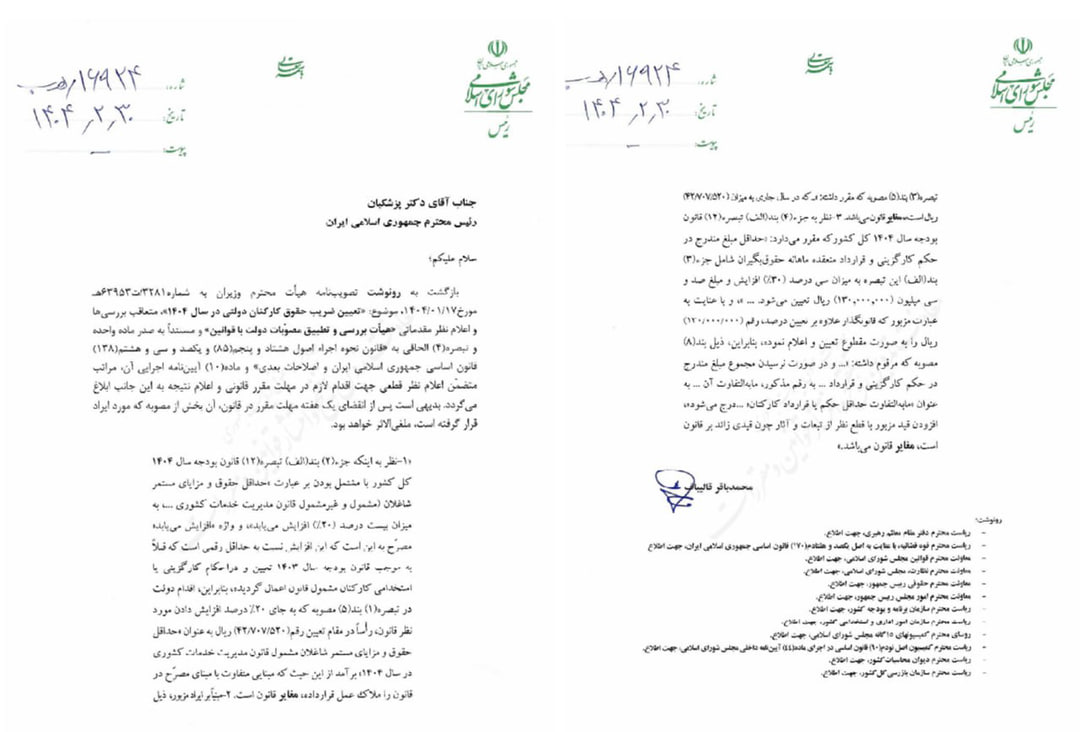 جمهوری اسلامی ایران
مجلس شورای اسلامی
رئیس
بسمه تعالی
شماره: ۱۶۹۲۴/هـ ب
تاریخ: ۱۴۰۴/۲/۳۰
پیوست: —
جناب آقای دکتر پزشکیان
رئیس محترم جمهوری اسلامی ایران
سلام علیکم؛
بازگشت به رونوشت تصویب‌نامه هیأت محترم وزیران به شماره ۳۲۸۱/ت۶۳۹۵۳هـ
مورخ ۱۴۰۴/۰۱/۱۷، موضوع: «تعیین ضریب حقوق کارکنان دولتی در سال ۱۴۰۴»، متعاقب بررسی‌ها
و اعلام نظر مقدماتی «هیأت بررسی و تطبیق مصوبّات دولت با قوانین» و مستنداً به صدر ماده واحده
و تبصره(۴) الحاقی به «قانون نحوه اجراء اصول هشتاد و پنجم(۸۵) و یکصد و سی و هشتم(۱۳۸)
قانون اساسی جمهوری اسلامی ایران و اصلاحات بعدی» و ماده(۱۰) آیین‌نامه اجرایی آن، مراتب
متضمّن اعلام نظر قطعی جهت اقدام لازم در مهلت مقرر قانونی و اعلام نتیجه به این جانب ابلاغ
می‌گردد. بدیهی است پس از انقضای یک هفته مهلت مقرر در قانون، آن بخش از مصوبه که مورد ایراد
قرار گرفته است، ملغی‌الاثر خواهد بود.
«۱-نظر به اینکه جزء(۲) بند(الف) تبصره(۱۲) قانون بودجه سال ۱۴۰۴
کل کشور با مشتمل بودن بر عبارت «حداقل حقوق و مزایای مستمر
شاغلان (مشمول و غیرمشمول قانون مدیریت خدمات کشوری ...، به
میزان بیست درصد (۲۰٪) افزایش می‌یابد»، و واژه «افزایش می‌یابد»
مصرّح به این است که این افزایش نسبت به حداقل رقمی است که قبلاً
به موجب قانون بودجه سال ۱۴۰۳ تعیین و در احکام کارگزینی یا
استخدامی کارکنان مشمول قانون اعمال گردیده، بنابراین، اقدام دولت
در تبصره(۱) بند(۵) مصوبه که به جای ۲۰٪ درصد افزایش دادن مورد
نظر قانون، رأساً در مقام تعیین رقم(۴۲/۷۰۷/۵۲۰) ریال به عنوان «حداقل
حقوق و مزایای مستمر شاغلان مشمول قانون مدیریت خدمات کشوری
در سال ۱۴۰۴» برآمد از این حیث که مبنایی متفاوت با مبنای مصرّح در
قانون را ملاک عمل قرارداده، مغایر قانون است. ۲-مبنیاً بر ایراد مزبور، ذیل
جمهوری اسلامی ایران
مجلس شورای اسلامی
رئیس
بسمه تعالی
شماره: ۱۶۹۲۴/هـ ب
تاریخ: ۱۴۰۴/۲/۳۰
پیوست: —
تبصره(۳) بند(۵) مصوبه که مقرر داشته: «ـ که در سال جاری به میزان (۴۲/۷۰۷/۵۲۰)
ریال است، مغایر قانون می‌باشد. ۳-نظر به جزء(۴) بند(الف) تبصره(۱۲) قانون
بودجه سال ۱۴۰۴ کل کشور که مقرر می‌دارد: «حداقل مبلغ مندرج در
حکم کارگزینی و قرارداد منعقده ماهانه حقوق‌بگیران شامل جزء(۳)
بند(الف) این تبصره به میزان سی درصد (۳۰٪) افزایش و مبلغ صد و
سی میلیون (۱۳۰,۰۰۰,۰۰۰) ریال تعیین می‌شود. ... »، و با عنایت به
عبارت مزبور که قانونگذار علاوه بر تعیین درصد، رقم (۱۳۰/۰۰۰/۰۰۰)
ریال را به صورت مقطوع تعیین و اعلام نموده، بنابراین، ذیل بند(۸)
مصوبه که مرقوم داشته: «ـ و در صورت نرسیدن مجموع مبلغ مندرج
در حکم کارگزینی و قرارداد ... به رقم مذکور، مابه‌التفاوت آن ... به
عنوان «مابه‌التفاوت حداقل حکم یا قرارداد کارکنان» ...درج می‌شود»،
افزودن قید مزبور با قطع نظر از تبعات و آثار چون قیدی زائد بر قانون
است، مغایر قانون می‌باشد.»
محمدباقر قالیباف
رونوشت:
- ریاست محترم دفتر مقام معظم رهبری، جهت اطلاع.
- ریاست محترم قوه قضائیه، با عنایت به اصل یکصد و هفتادم(۱۷۰) قانون اساسی جمهوری اسلامی ایران، جهت اطلاع
- معاونت محترم قوانین مجلس شورای اسلامی، جهت اطلاع.
- معاونت محترم نظارت، مجلس شورای اسلامی، جهت اطلاع.
- معاونت محترم حقوقی رییس جمهور، جهت اطلاع.
- معاونت محترم امور مجلس رییس جمهور، جهت اطلاع.
- ریاست محترم سازمان برنامه و بودجه کشور، جهت اطلاع.
- ریاست محترم سازمان امور اداری و استخدامی کشور، جهت اطلاع.
- روسای محترم کمیسیونهای ۱۵گانه مجلس شورای اسلامی، جهت اطلاع.
- ریاست محترم کمیسیون اصل نودم(۹۰) قانون اساسی در اجرای ماده(٤٤) آیین‌نامه داخلی مجلس شورای اسلامی، جهت اطلاع.
- ریاست محترم دیوان محاسبات کشور، جهت اطلاع.
- ریاست محترم سازمان بازرسی کل کشور، جهت اطلاع.